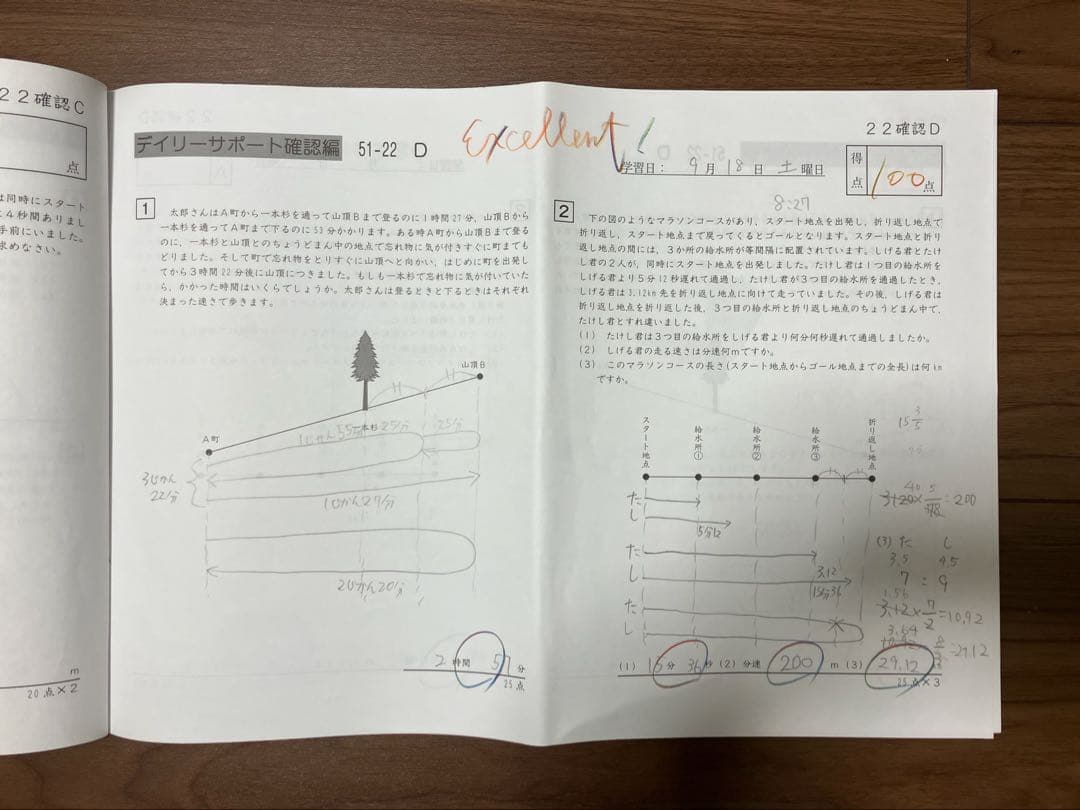 22確認C
点
は同時にスタート
に4秒間ありまし
手前にいました。
求めなさい。
m
20点×2
デイリーサポート確認編 51-22 D
Excellent!
22確認D
学習日： 9月18日 土曜日
得点 100点
8:27
1
太郎さんはA町から一本杉を通って山頂Bまで登るのに1時間27分、山頂Bから
一本杉を通ってA町まで下るのに53分かかります。ある時A町から山頂Bまで登る
のに、一本杉と山頂とのちょうどまん中の地点で忘れ物に気が付きすぐに町までも
どりました。そして町で忘れ物をとりすぐに山頂へと向かい、はじめに町を出発し
てから3時間22分後に山頂につきました。もしも一本杉で忘れ物に気が付いていた
ら、かかった時間はいくらでしょうか。太郎さんは登るときと下るときはそれぞれ
決まった速さで歩きます。
山頂B
一本杉
A町
1じかん55分
25分
25分
3じかん
22分
1じかん27分
2じかん20分
2時間57分
25点
2
下の図のようなマラソンコースがあり、スタート地点を出発し、折り返し地点で
折り返し、スタート地点まで戻ってくるとゴールとなります。スタート地点と折り
返し地点の間には、3か所の給水所が等間隔に配置されています。しげる君とたけ
し君の2人が、同時にスタート地点を出発しました。たけし君は1つ目の給水所を
しげる君より5分12秒遅れて通過し、たけし君が3つ目の給水所を通過したとき、
しげる君は3.12km先を折り返し地点に向けて走っていました。その後、しげる君は
折り返し地点を折り返した後、3つ目の給水所と折り返し地点のちょうどまん中で、
たけし君とすれ違いました。
(1) たけし君は3つ目の給水所をしげる君より何分何秒遅れて通過しましたか。
(2) しげる君の走る速さは分速何mですか。
(3) このマラソンコースの長さ(スタート地点からゴール地点までの全長)は何km
ですか。
15 3/5
スタート地点
給水所①
給水所②
給水所③
折り返し地点
た
し
5分12
た
し
3.12
15分36
た
し
=200
(3) た し
3.5 4.5
7 : 9
1.56
×7/2=10.92
3.64
=29.12
(1) 15分36秒 (2) 分速 200 m (3) 29.12
25点×3